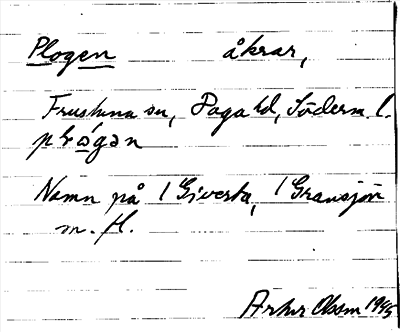 Plogen åkrar,
Frustuna sn, Daga hd, Söderm l.
plógən
Namn på 1 Giversta, 1 Gransjön
m. fl.
Artur Olsson 1945